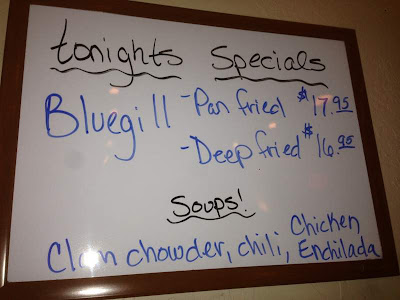 tonights Specials
Bluegill - Pan fried $17.95
- Deep fried $16.95
Soups!
Clam chowder, chili, Chicken Enchilada